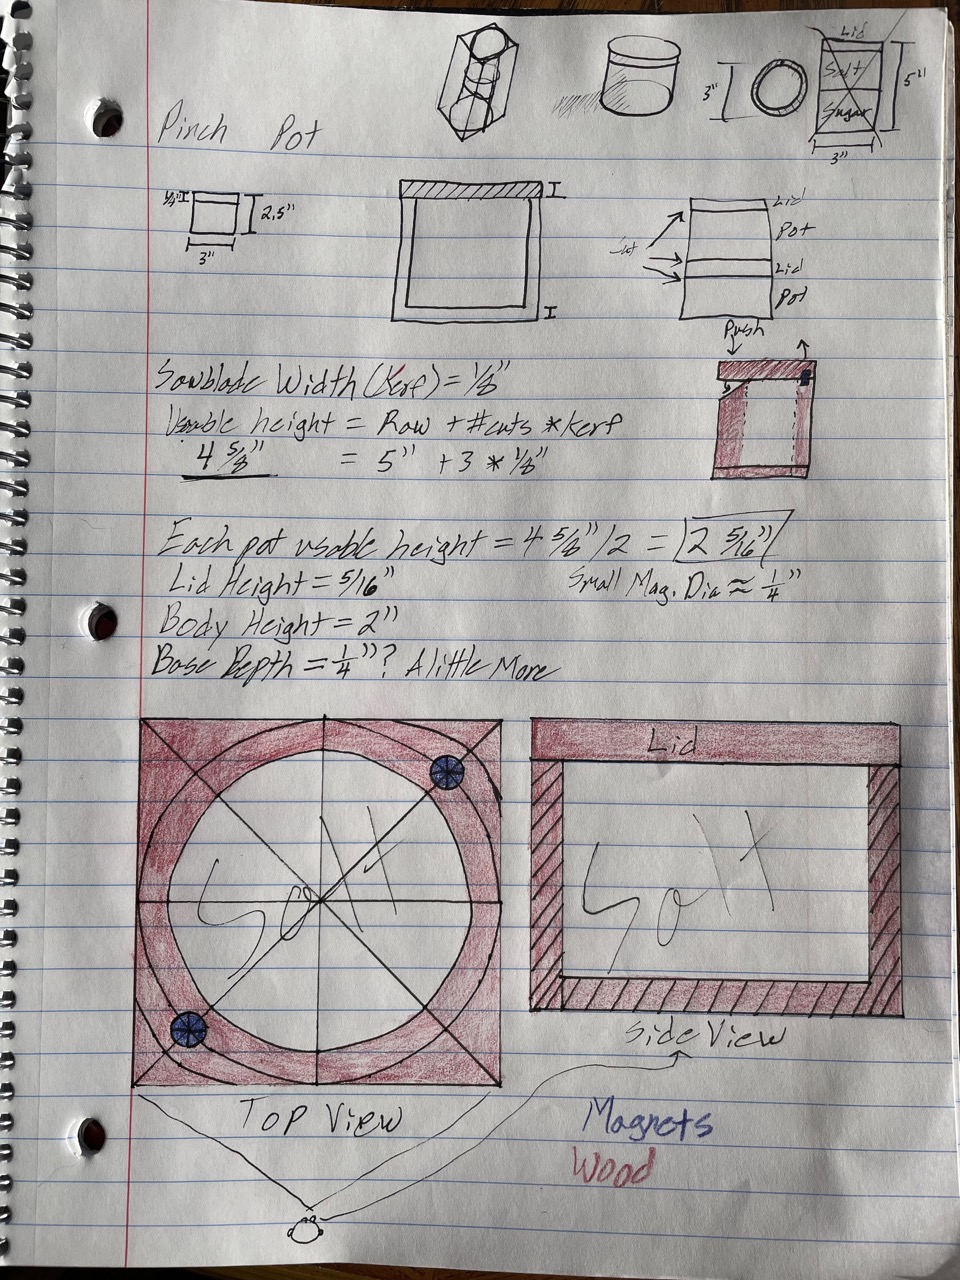 Lid
Salt
Sugar
3"
5"
3"
Pinch Pot
1/4"
2.5"
3"
Lid
Pot
Cut
Lid
Pot
Push
Sawblade Width (Kerf) = 1/8"
Usable height = Raw + #cuts * kerf
4 5/8" = 5" + 3 * 1/8"
Each pot usable height = 4 5/8" / 2 = 2 5/16"
Lid Height = 5/16"
Small Mag. Dia ≈ 1/4"
Body Height = 2"
Base Depth = 1/4"? A little More
Salt
Lid
Salt
Side View
Top View
Magnets
Wood